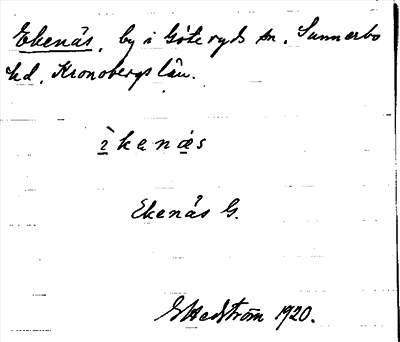 Ekenäs, by i Göteryds sn. Sunnerbo
hd. Kronobergs län.
ìkenæs
Ekenäs G.
GHedström 1920.